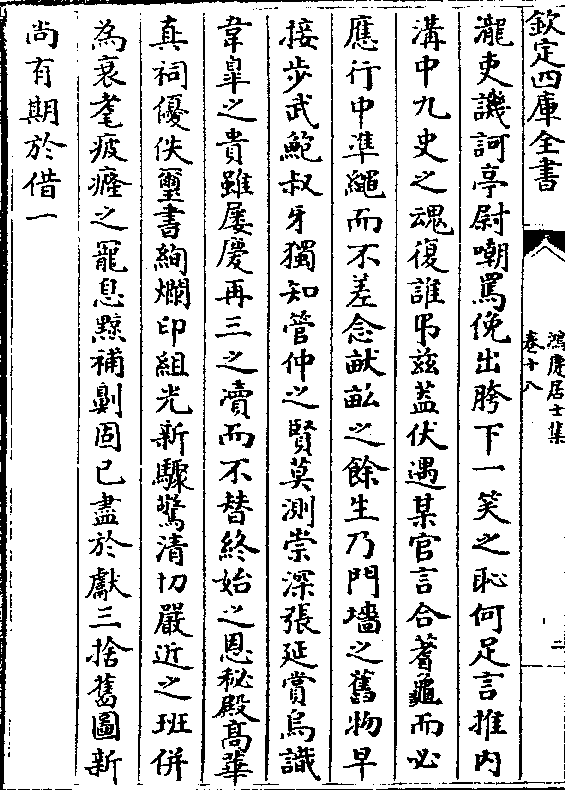 欽定四庫全書
鴻慶居士集
卷十八
二
瀧吏譏訶亭尉嘲罵俛出胯下一笑之恥何足言推内
溝中九史之魂復誰弔兹蓋伏遇某官言合蓍龜而必
應行中凖繩而不差念畎畝之餘生乃門墻之舊物早
接步武鮑叔牙獨知管仲之賢莫測崇深張延賞烏識
韋臯之貴雖屢慶再三之瀆而不替終始之恩秘殿髙華
真祠優佚璽書絢爛印組光新驟驚清切嚴近之班併
為衰耄疲癃之寵息黥補劓固已盡於獻三捨舊圖新
尚有期於借一